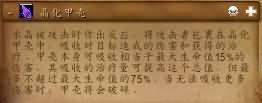 晶化甲壳
水晶被攻击时作出反应，将攻击者包裹在晶化
甲壳中，吸收对目标造成的伤害和获得的治
疗。甲壳本身可吸收相当于最大生命值15%的
伤害，其吸收的治疗量可提高这个总值，但最
多不超过最大生命值的75%。当无法吸收更多
伤害时，甲壳将会破碎。